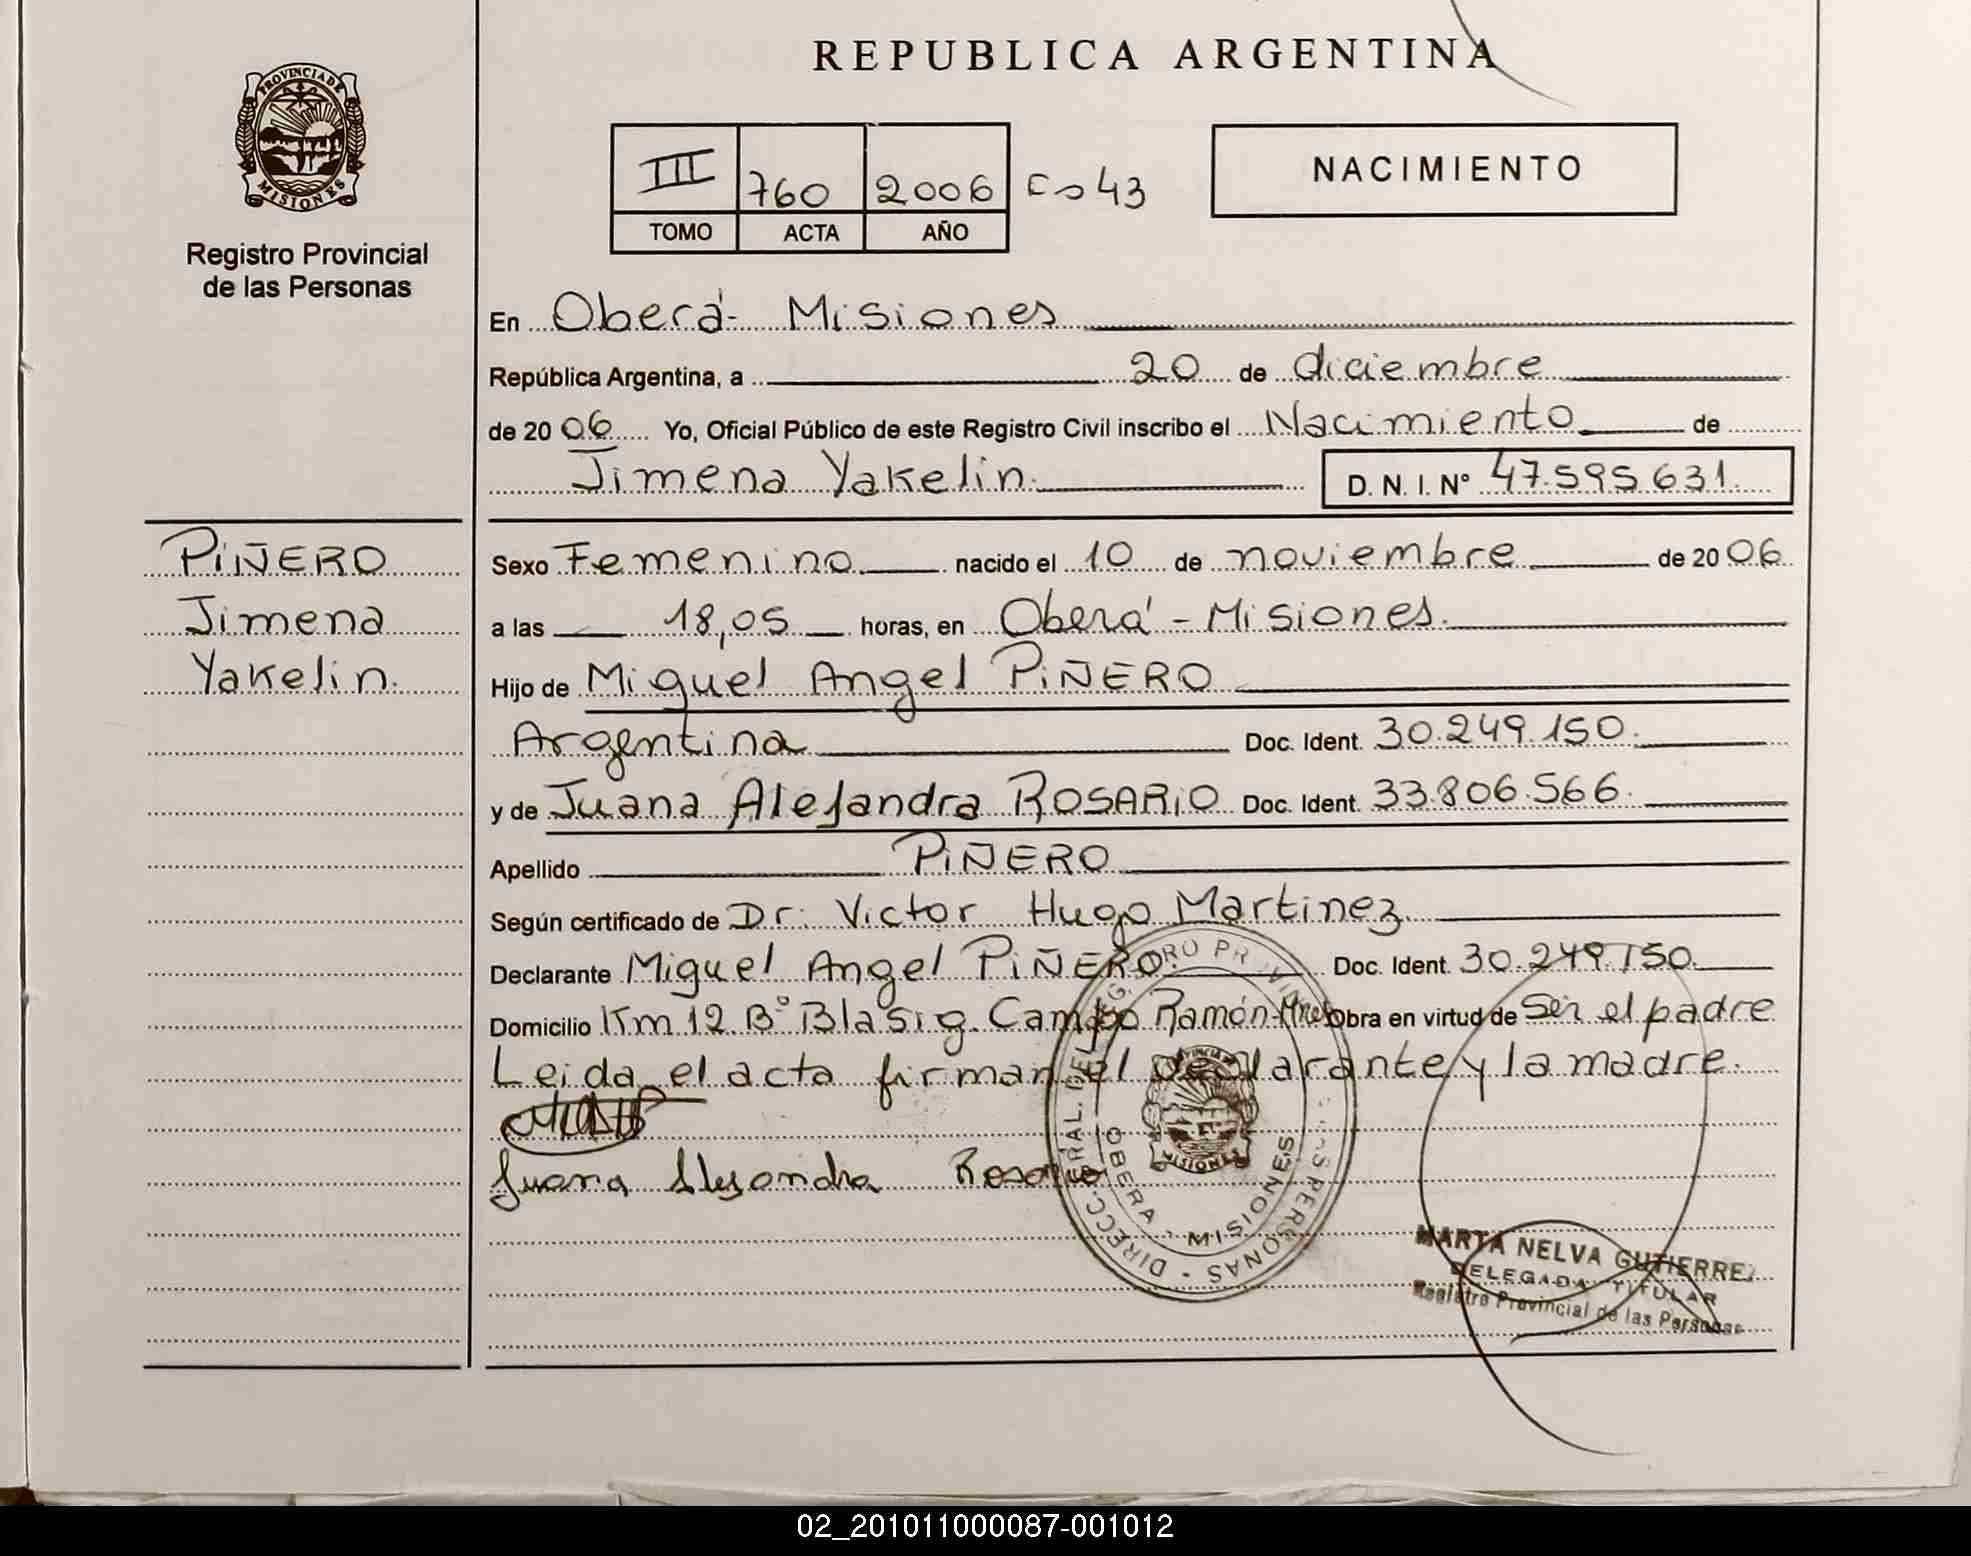 REPUBLICA ARGENTINA
PROVINCIA DE
MISIONES
Registro Provincial
de las Personas
III 760 2006 Cs 43
TOMO ACTA AÑO
NACIMIENTO
En Oberá - Misiones
República Argentina, a 20 de diciembre
de 20 06 Yo, Oficial Público de este Registro Civil inscribo el Nacimiento de
Jimena Yakelin. D. N. I. N° 47.595.631.
PIÑERO
Jimena
Yakelin.
Sexo Femenino nacido el 10 de noviembre de 20 06
a las 18,05 horas, en Oberá - Misiones.
Hijo de Miguel Angel PIÑERO
Argentina Doc. Ident. 30.249.150.
y de Juana Alejandra ROSARIO Doc. Ident. 33.806.566.
Apellido PIÑERO
Según certificado de Dr. Victor Hugo Martinez
Declarante Miguel Angel PIÑERO. Doc. Ident. 30.249.150
Domicilio Km 12 B° Blasig. Campo Ramón Obra en virtud de Ser el padre
Leida el acta firman el declarante y la madre.
Juana Alejandra Rosario
DIRECC. GRAL. DEL REGISTRO PROVINCIAL DE LAS PERSONAS
MISIONES
OBERA - MISIONES
MARTA NELVA GUTIERREZ
DELEGADA TITULAR
Registro Provincial de las Personas
02_201011000087-001012